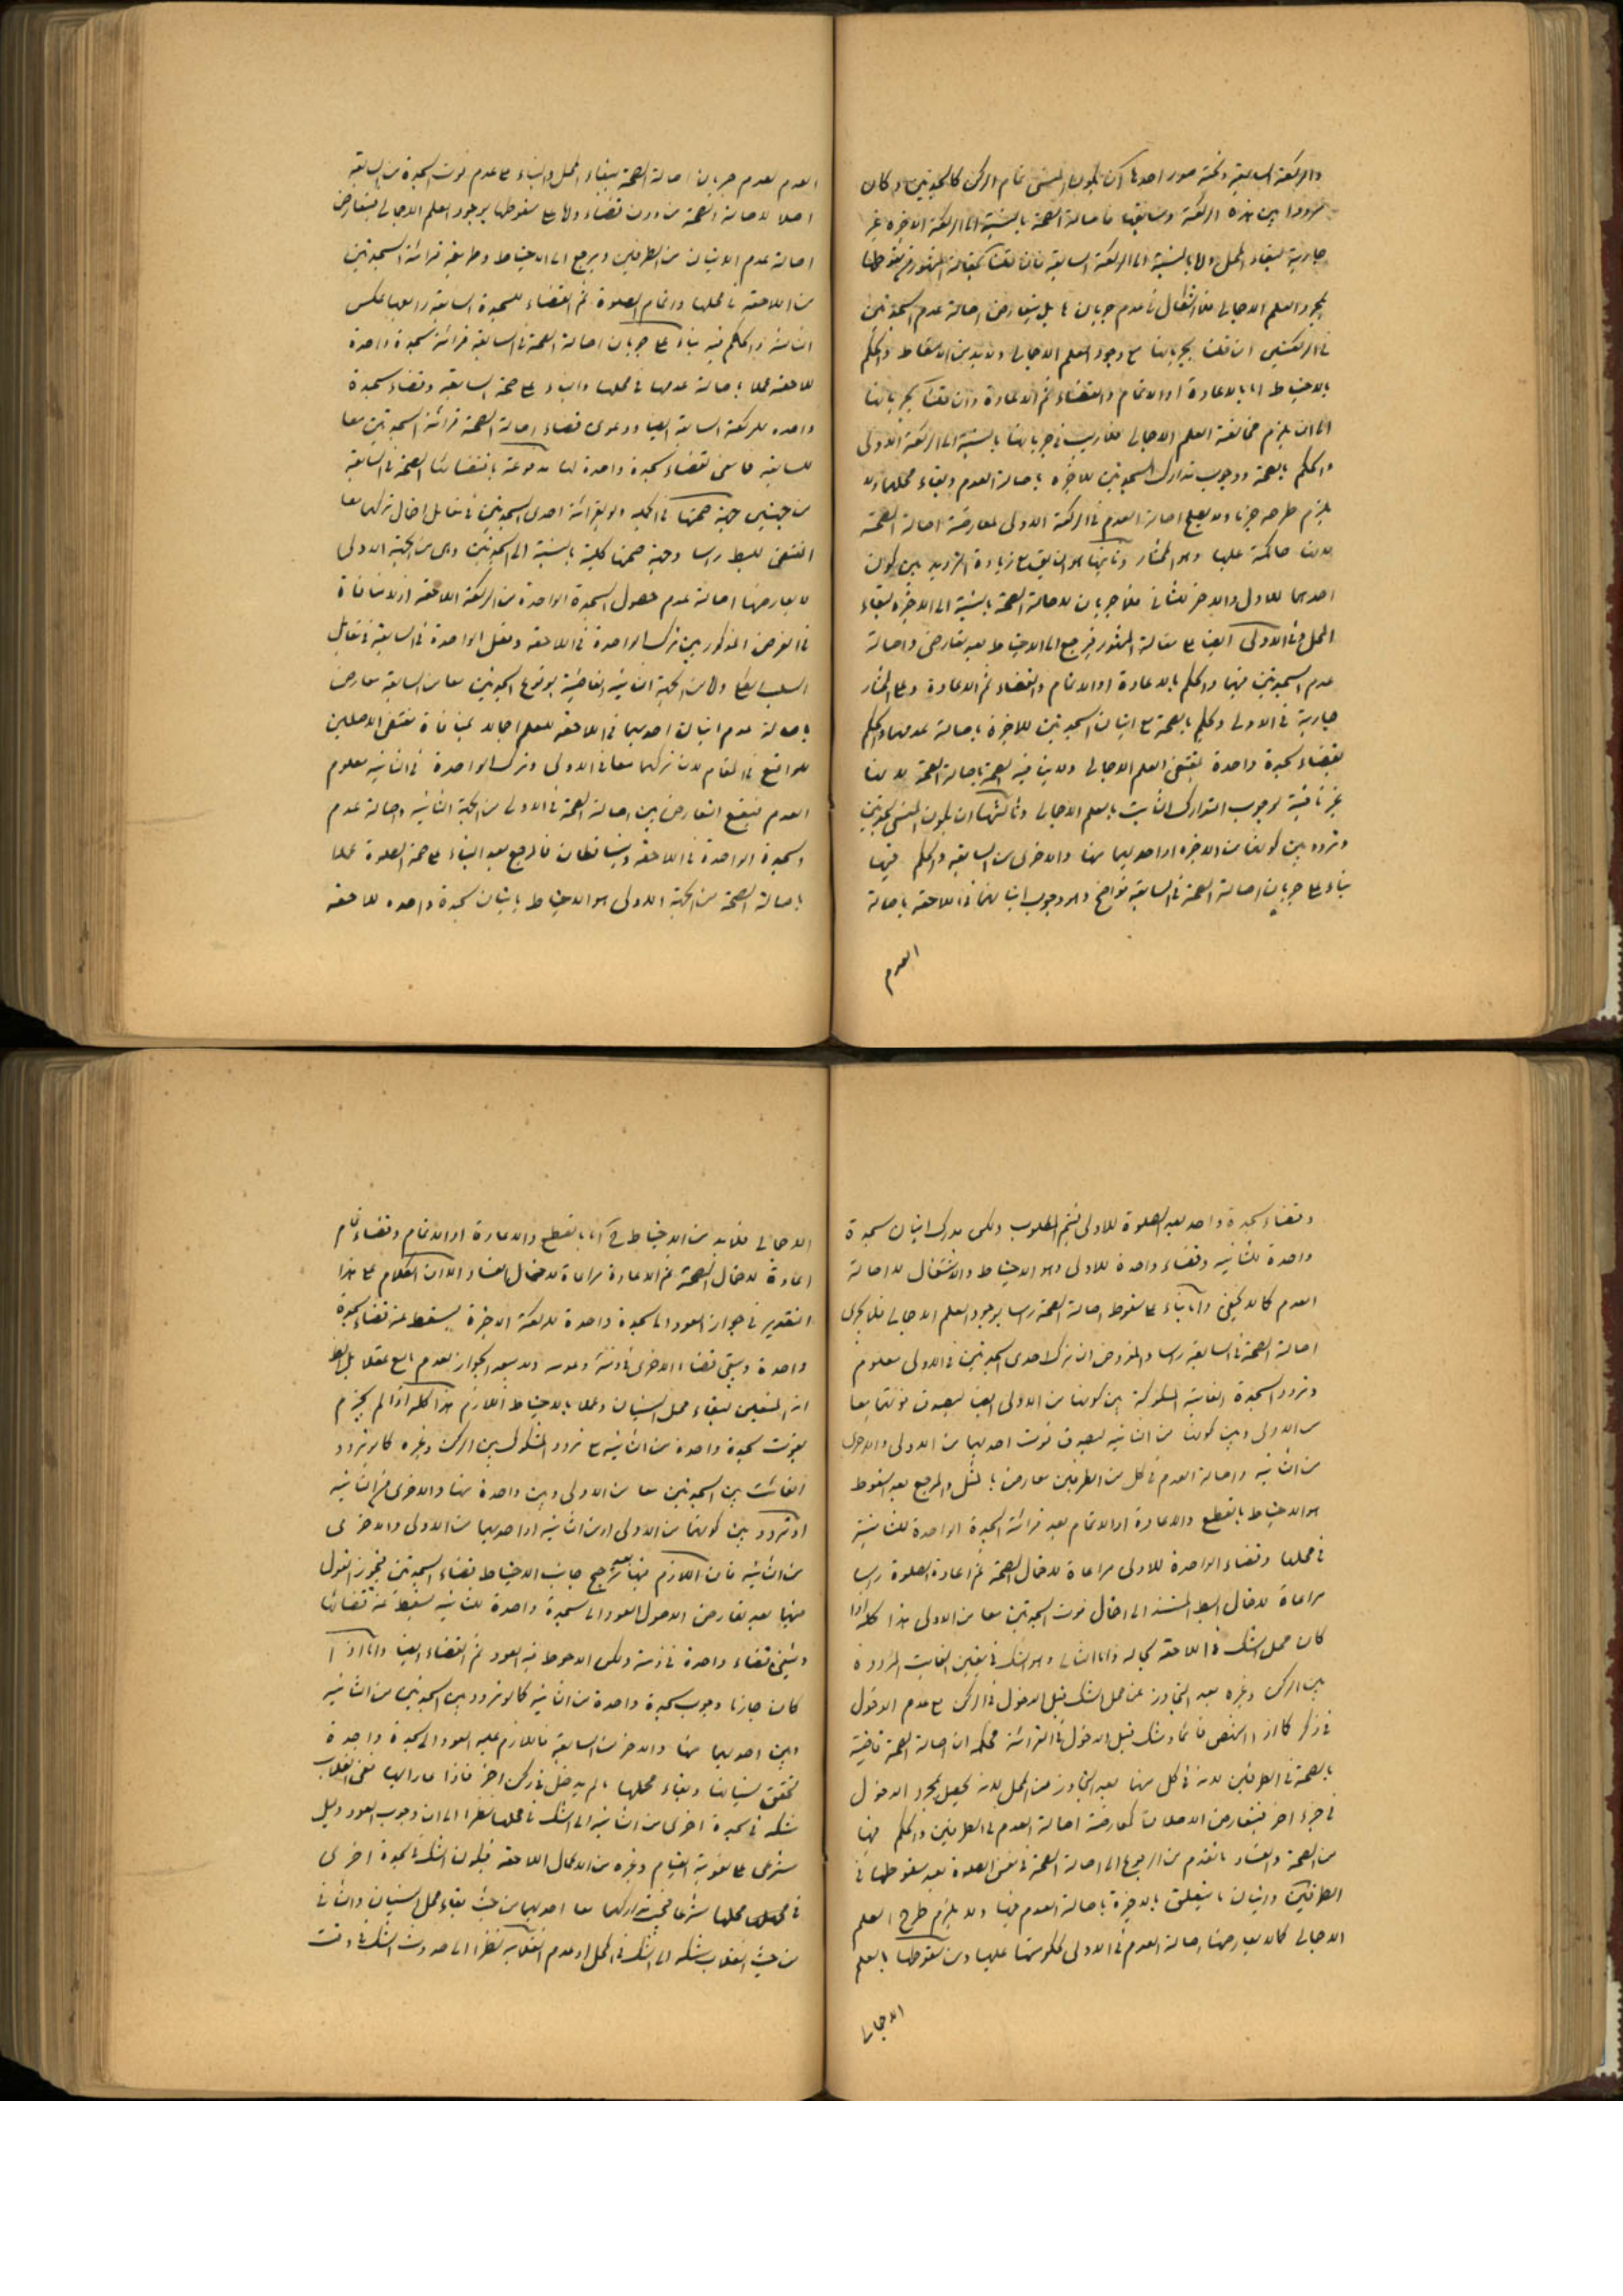 والركعة السابقة وتحته صور احدها ان يكون المنسى تمام الركن كالسجدتين وكان
مرددا بين هذه الركعة وسابقها فاصالة الصحة بالنسبة الى الركعة الاخيرة غير
جارية لبقاء المحل واما بالنسبة الى الركعة السابقة فان قلنا بمقالة المشهور من سقوطها
بمجرد العلم الاجمالى فلا اشكال فى عدم جريان بل يتعارض اصالة عدم السجدتين
فى الركعتين ان قلنا بجريانها مع وجود العلم الاجمالى ولا بد من الاسقاط والحكم
بالاحتياط اما بالاعادة او الاتمام والقضاء ثم الاعادة وان قلنا بجريانها
الى ان يلزم مخالفة العلم الاجمالى فلا ريب فى جريانها بالنسبة الى الركعة الاولى
والحكم بالصحة ووجوب تدارك السجدتين للاخيرة باصالة العدم وبقاء محلهما ولا
يلزم طرحه جزما ولا يصلح اصالة العدم فى الركعة الاولى لمعارضة اصالة الصحة
لانها حاكمة عليها وهو المختار وثانيها هو السابق مع زيادة الترديد بين كون
احدهما للاول والاخر للثانى فلا جريان لاصالة الصحة بالنسبة الى الاخيرة لبقاء
المحل وفى الاولى ايضا على مقالة المشهور فيرجع الى الاحتياط بعد تعارض اصالة
عدم السجدتين فيهما والحكم بالاعادة او الاتمام والقضاء ثم الاعادة وعلى المختار
جارية فى الاولى ويحكم بالصحة مع اتيان السجدتين للاخيرة باصالة عدمهما والحكم
بقضاء سجدة واحدة بمقتضى العلم الاجمالى ولا ينافيه الصحة باصالة الصحة لانها
غير نافية لوجوب التدارك الثابت بالعلم الاجمالى وثالثها ان يكون المنسى سجدتين
وتردد بين كونهما من الاخيرة او احديهما منها والاخرى من السابقة والحكم فيها
بناء على جريان اصالة الصحة فى السابقة واضح وهو وجوب اتيانهما فى اللاحقة باصالة
العدم
العدم لعدم جريان اصالة الصحة ببقاء المحل والبناء على عدم فوت السجدة من السابقة
اصلا لاصالة الصحة من دون قضاء واما على سقوطها بوجود العلم الاجمالى فيتعارض
اصالة عدم الاتيان من الطرفين ويرجع الى الاحتياط وطريقه قرائة السجدتين
من اللاحقة فى محلها واتمام الصلوة ثم القضاء للسجدة السابقة ورابعها عكس
الثالثة والحكم فيه بناء على جريان اصالة الصحة فى السابقة قرائة سجدة واحدة
للاحقة عملا باصالة عدمها فى محلها والبناء على صحة السابقة وقضاء سجدة
واحده للركعة السابقة ايضا ودعوى قضاء اصالة الصحة قرائة السجدتين معا
للسابقة فاى معنى لقضاء سجدة واحدة لها مدفوعة باقتضائها الصحة فى السابقة
من جهتين جهة صحتها فى الجملة ولو بقرائة احدى السجدتين فى مقابل احتمال تركهما معا
المقتضى للبطلان راسا وجهة صحتها كلية بالنسبة الى السجدتين وهى من الجهة الاولى
لا يعارضها اصالة عدم حصول السجدة الواحدة من الركعة اللاحقة اذ لا منافاة
باصالة عدم اتيان احديهما فى اللاحقة للعلم اجمالا بمنافاة مقتضى الاصلين
للواقع فى المقام لان تركهما معا فى الاولى وترك الواحدة فى الثانية معلوم
العدم فيقع التعارض بين اصالة الصحة فى الاولى من الجهة الثانية واصالة عدم
السجدة الواحدة فى اللاحقة ويتساقطان فالمرجع بعد البناء على صحة الصلوة عملا
باصالة الصحة من الجهة الاولى هو الاحتياط باتيان سجدة واحده للاحقة
وقضاء سجدة واحد بعد الصلوة للاولى فيتم المطلوب ولكن مدرك اتيان سجدة
واحدة للثانية وقضاء واحدة للاولى وهو الاحتياط والاشتغال لا اصالة
العدم كما لا يخفى واما بناء على سقوط اصالة الصحة راسا بوجود العلم الاجمالى فلا يجرى
اصالة الصحة فى السابقة راسا والمفروض ان ترك احدى السجدتين فى الاولى معلوم
وتردد السجدة الفايتة المشكوكة بين كونها من الاولى ايضا ليصدق فوتهما معا
من الاولى وبين كونها من الثانية ليصدق فوت احديهما من الاولى والاخرى
من الثانية واصالة العدم فى كل من الطرفين معارض بالمثل والمرجع بعد السقوط
هو الاحتياط بالقطع والاعادة او الاتمام بعد قرائة السجدة الواحدة للثانية
فى محلها وقضاء الواحدة للاولى مراعاة لاحتمال الصحة ثم اعادة الصلوة راسا
مراعاة لاحتمال البطلان المستند الى احتمال فوت السجدتين معا من الاولى هذا كله اذا
كان محل الشك فى اللاحقة بحاله واما الثانى وهو الشك فى تعيين الفايت المرددة
بين الركن وغيره بعد التجاوز عن محل الشك قبل الدخول فى الركن مع عدم الدخول
فى ذكر كما اذا انتصب قائما وشك قبل الدخول فى القرائة فحكمه ان اصالة الصحة قاضية
بالصحة فى الطرفين لانه فى كل منهما بعد التجاوز عن المحل لانه يحصل بمجرد الدخول
فى جزء اخر فيتعارض الاصلان كمعارضة اصالة العدم فى الطرفين والحكم فيها
من الصحة والفساد ما تقدم من الرجوع الى اصالة الصحة فى نفس الصلوة بعد سقوطها فى
الطرفين واتيان ما يتعلق بالاخيرة باصالة العدم فيها ولا يلزم طرح العلم
الاجمالى كما لا يعارضها اصالة العدم فى الاولى لحكومتها عليها ومن سقوطها بالعلم
الاجمالى
الاجمالى فلا بد من الاحتياط اما بالقطع والاعادة او الاتمام وقضاء
اعادة لاحتمال الصحة ثم الاعادة مراعاة لاحتمال الفساد الا ان الكلام على هذا
التقدير فى جواز العود الى سجدة واحدة للركعة الاخيرة ليسقط عنه قضاء سجدة
واحدة ويبقى قضاء الاخرى فى ذمته وعدمه ولا يبعد الجواز لعدم مانع عقلا
انه المتعين لبقاء محل النسيان وعملا بالاحتياط اللازم هذا كله اذا لم يجزم
بفوت سجدة واحدة من الثانية مع تردد المشكوك بين الركن وغيره كما لو تردد
الفائت بين السجدتين معا من الاولى وبين واحدة منها والاخرى من الثانية
او تردد بين كونهما من الاولى او من الثانية او احديهما من الاولى والاخرى
من الثانية فان اللازم فيها ترجيح جانب الاحتياط قضاء السجدتين فيجوز القول
فيها بعد تعارض الاصول العود الى سجدة واحدة للثانية ليسقط عنه قضائها
ويبقى قضاء واحدة فى ذمته ولكن الاحوط فيه العود ثم القضاء ايضا واما اذا
كان جازما وجوب سجدة واحدة من الثانية كما لو تردد بين السجدتين من الثانية
وبين احديهما منها والاخر من السابقة فاللازم عليه العود الى سجدة واحدة
لتحقق نسيانها وبقاء محلها ما لم يدخل فى ركن اخر فاذا عاد اليها ففى انقلاب
شكه فى سجدة اخرى من الثانية الى الشك فى محلها نظرا الى ان وجوب العود دليل
شرعى على لغوية القيام وغيره من الافعال اللاحقة فيكون الشك فى سجدة اخرى
فى محلها شرعا فيجب تداركهما معا احديهما من حيث بقاء محل النسيان والثانى
من حيث انقلاب شكه الى الشك فى المحل او عدم انقلابه نظرا الى حدوث الشك فى وقت